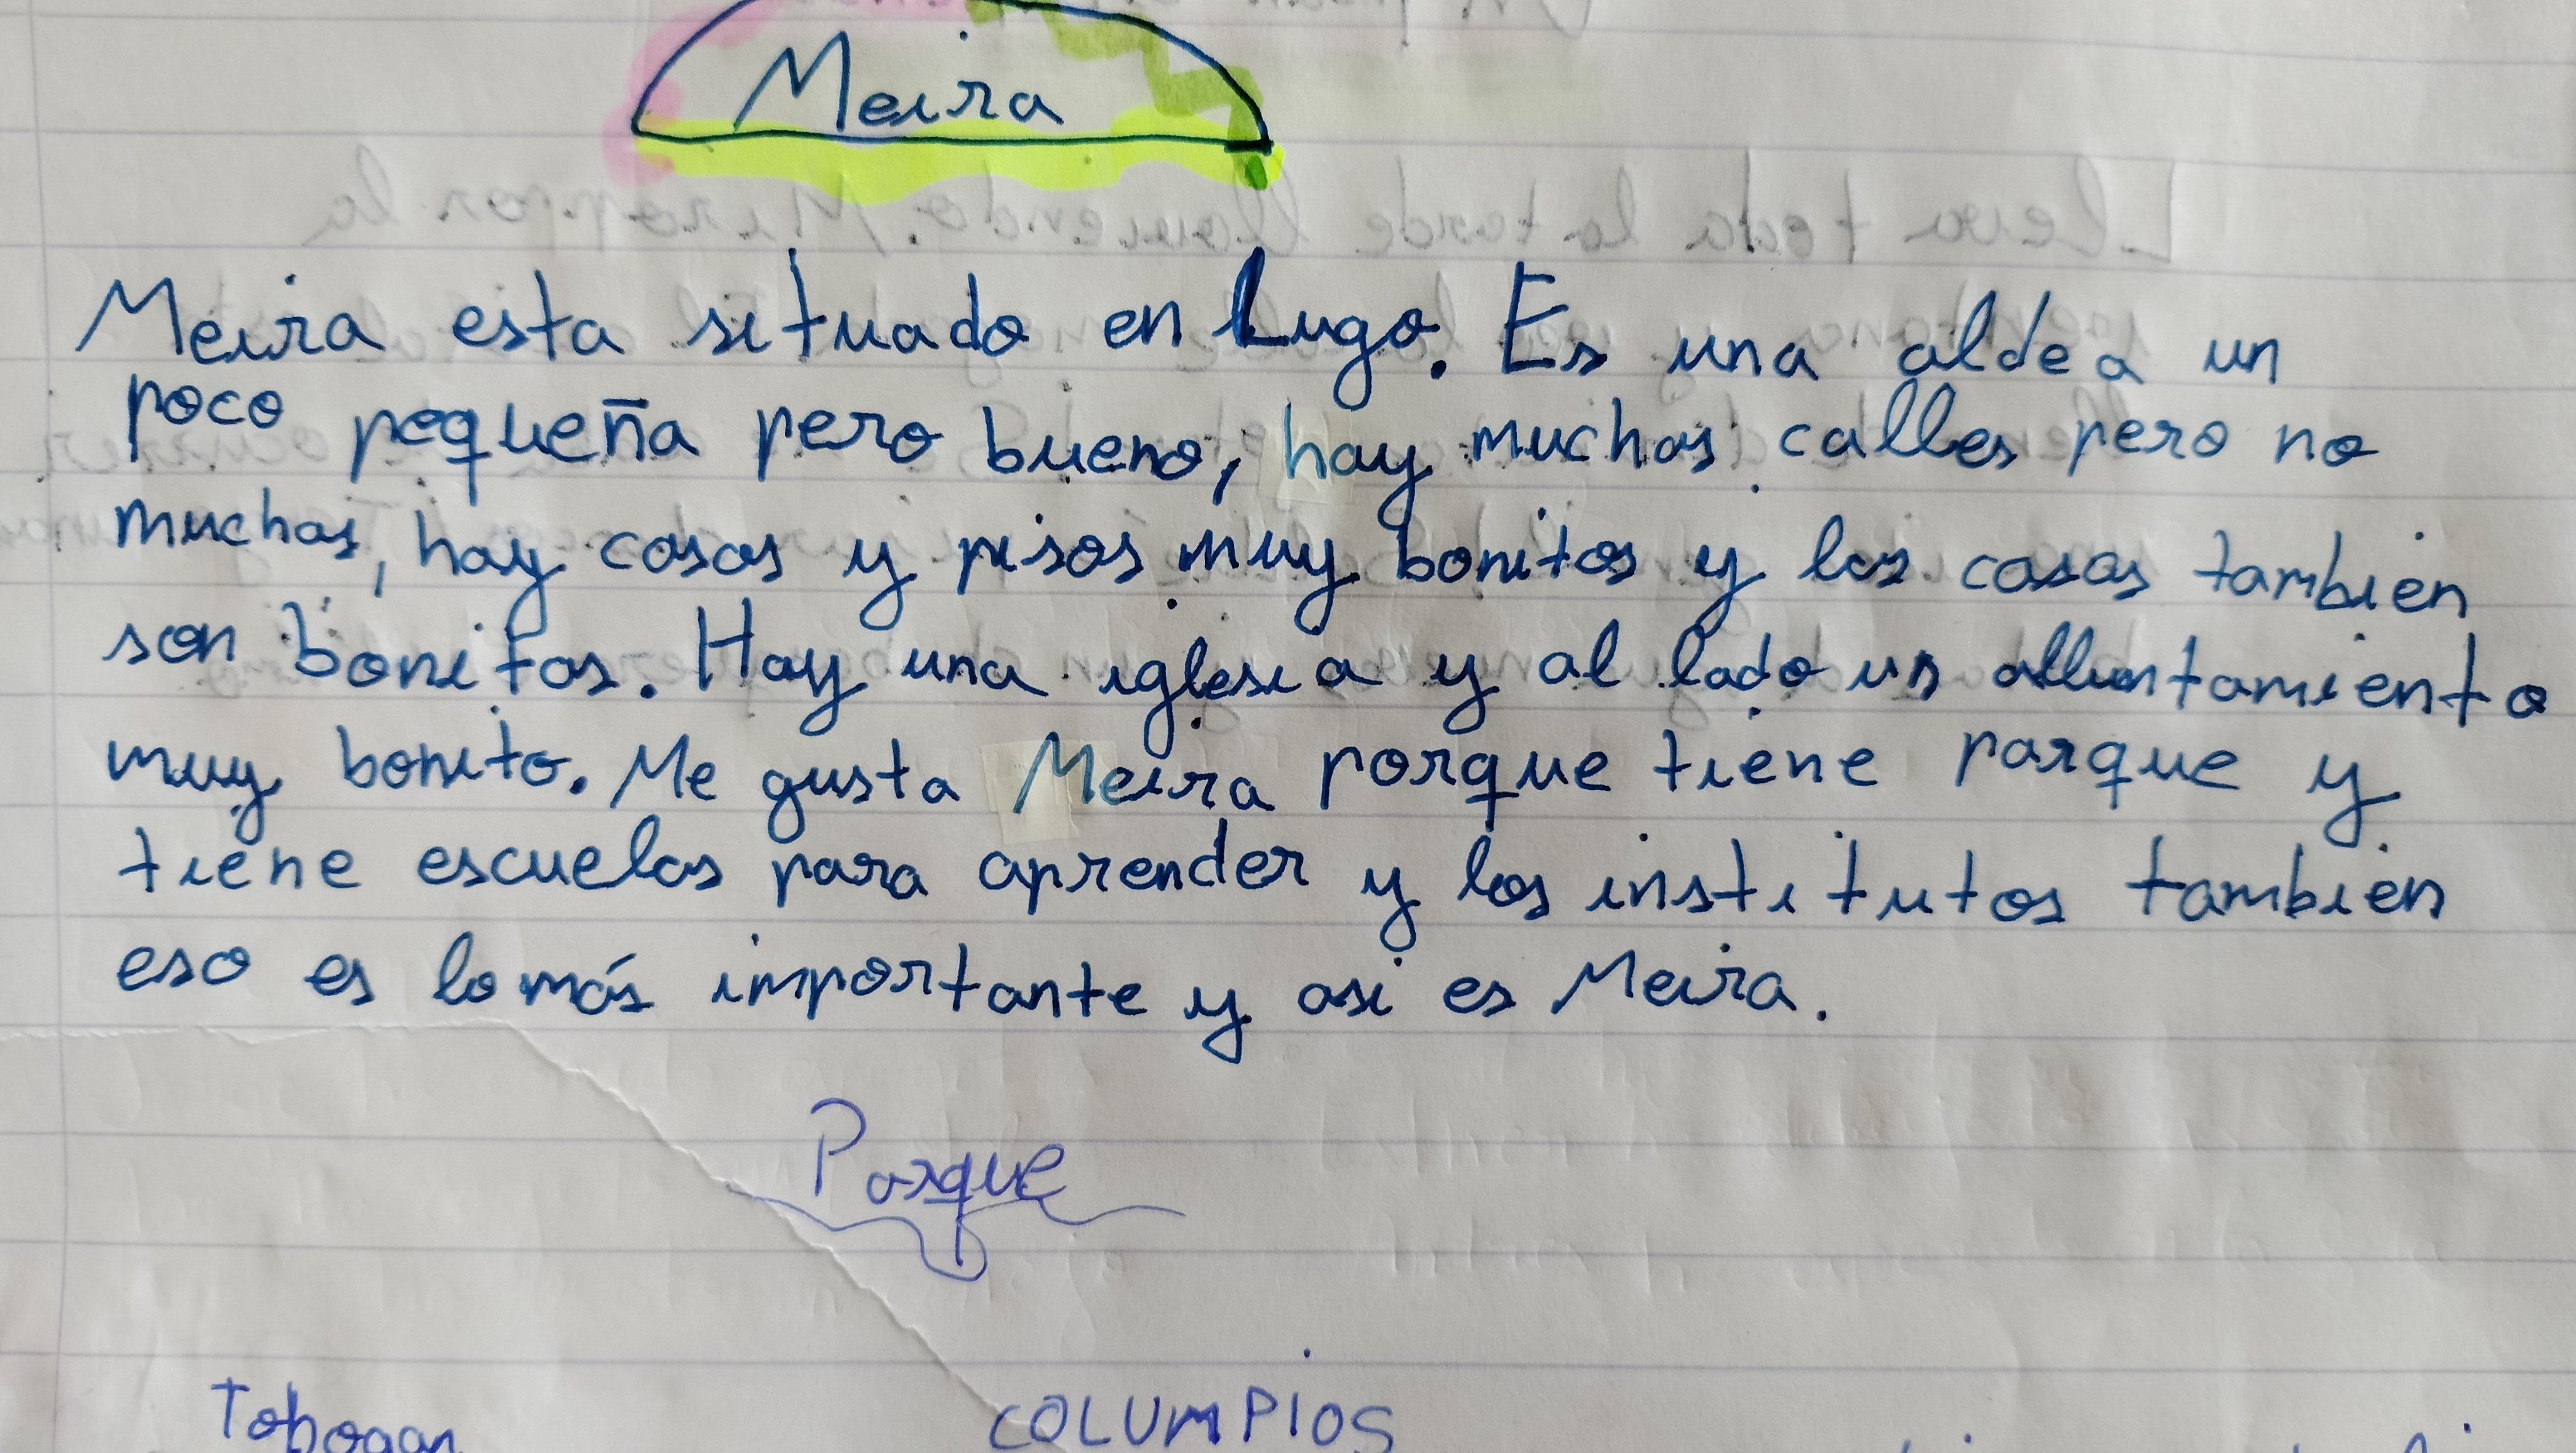 Meira
Meira esta situado en Lugo. Es una aldea un
poco pequeña pero bueno, hay muchas calles pero no
muchas, hay casas y pisos muy bonitos y las casas tambien
son bonitas. Hay una iglesia y al lado un alluntamiento
muy bonito. Me gusta Meira porque tiene parque y
tiene escuelas para aprender y los institutos tambien
eso es lo más importante y asi es Meira.
Parque
Tobogan COLUMPIOS